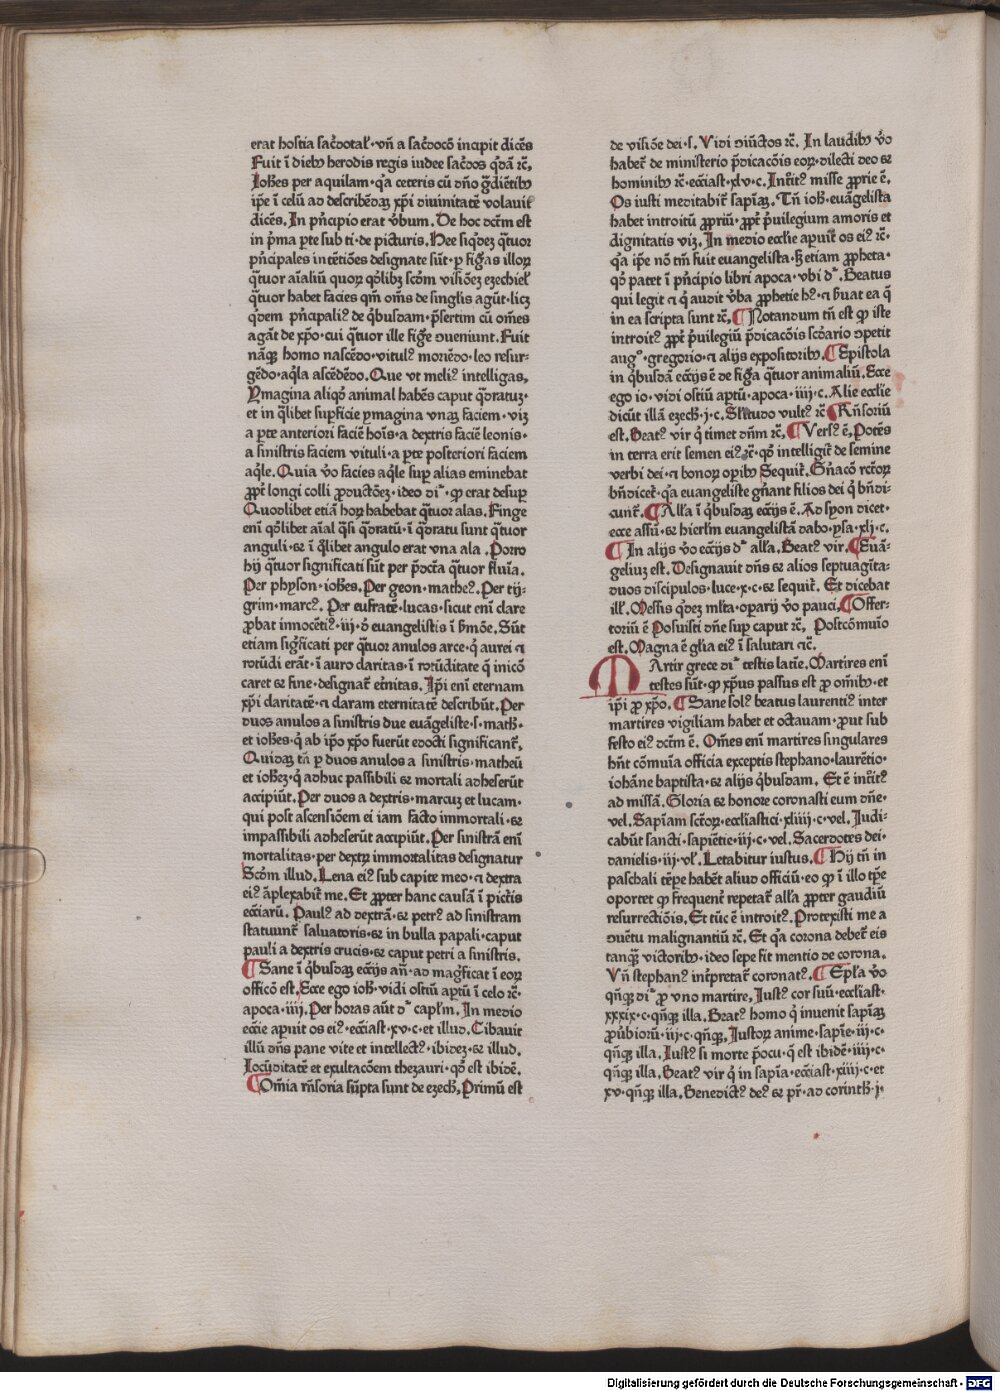 erat hostia sac̄dotal'. vn̄ a sac̄docō incipit dicēs
Fuit ī dieb⁹ herodis regis iudee sac̄dos q̄dā rc̄.
Ioh̄es per aquilam. q̄a ceteris cū dn̄o ḡdiētib⁹
ip̄e ī celū ad describēdaꝫ xp̄i diuinitatē volauit
dicēs. In pn̄cipio erat v̄bum. De hoc dc̄tm est
in p̄ma ꝑte sub ti. de picturis. Hee siq̄deꝫ q̄tuor
pn̄cipales intētiōes designate sūt. ꝑ fiḡas illoꝝ
q̄tuor aīaliū quoꝝ q̄libꝫ scd̄m visiōeꝫ ezechiel'
q̄tuor habet facies qm̄ om̄s de singlis agūt. licꝫ
q̄dem pn̄cipaliꝰ de q̄busdam. p̄sertim cū om̄es
agāt de xp̄o. cui q̄tuor ille fiḡe ꝯueniunt. Fuit
nāqꝫ homo nascēdo. vitulꝰ moriēdo. leo resur-
gēdo. aq̄la ascēdēdo. Que vt meliꝰ intelligas,
Ymagina aliqō animal habēs caput q̄dratuꝫ.
et in q̄libet suꝑficie ymagina vnaꝫ faciem. viꝫ
a ꝑte anteriori faciē hoīs. a dextris faciē leonis.
a sinistris faciem vituli. a ꝑte posteriori faciem
aq̄le. Quia v̄o facies aq̄le suꝑ alias eminebat
ꝓpt̄ longi colli ꝓductōeꝫ. ideo dī. ꝙ erat desuꝑ
Quodlibet etiā hoꝝ habebat q̄tuor alas. Finge
enī q̄dlibet aīal q̄si q̄dratū. ī q̄dratu sunt q̄tuor
anguli. et ī q̄libet angulo erat vna ala. Porro
hij q̄tuor significati sūt per p̄dc̄ta q̄tuor fluīa.
Per physon. ioh̄es. Per geon. matheꝰ. Per tij-
grim. marcꝰ. Per eufratē. lucas. sicut enī clare
ꝓbat innocētiꝰ. iij. d̄ euangelistis ī s̄mōe. Sūt
etiam siḡficati per q̄tuor anulos arce. q̄ aurei ⁊
rotūdi erāt. ī auro claritas. ī rotūditate q̄ inicō
caret et fine. designat̄ et̄nitas. Ip̄i enī eternam
xp̄i claritatē. ⁊ claram eternitatē describūt. Per
duos anulos a sinistris due euāgeliste. s. math̄.
et ioh̄es. q̄ ab ip̄o xp̄o fuerūt edocti significant̄.
Quidaꝫ tn̄ ꝑ duos anulos a sinistris. matheū
et ioh̄eꝫ. q̄ adhuc passibili et mortali adheserūt
accipiūt. Per duos a dextris. marcuꝫ et lucam.
qui post ascensiōem ei iam facto immortali. et
impassibili adheserūt accipiūt. Per sinistrā enī
mortalitas. per dextrꝫ immortalitas designatur
Scd̄m illud. Leua eiꝰ sub capite meo. ⁊ dextra
eiꝰ āplexabit̄ me. Et ꝓpter hanc causā ī pictīs
ecc̄iarū. Paulꝰ ad dextrā. et petrꝰ ad sinistram
statuunt̄ saluatoris. et in bulla papali. caput
pauli a dextris crucis. et caput petri a sinistris.
¶ Sane ī q̄busdaꝫ ecc̄ijs an̄. ad mag̅ficat ī eoꝝ
officō est. Ecce ego ioh̄. vidi ostiū aꝑtū ī celo rc̄.
apoca. iiij. Per horas aūt dr̄ capl̄m. In medio
ecc̄ie aperuit os eiꝰ. ecc̄iast. xv. c. et illud. Cibauit
illū dn̄s pane vite et intellectꝰ. ibideꝫ. et illud.
Iocūditatē et exultacōem thezauri. qd̄ est ibidē.
¶ Om̄ia rn̄soria sūpta sunt de ezech̄. Primū est
de visiōe dei. s. Vidi ꝯiūctos rc̄. In laudib⁹ v̄o
habet̄ de ministerio p̄dicacōis eoꝝ. dilecti deo et
hominib⁹ rc̄. ecc̄iast. xlv. c. Int̄itꝰ misse ꝓprie ē.
Os iusti meditabit̄ sapīaꝫ. Tn̄ ioh̄. euāgelista
habet introitū ꝓpriū. ꝓpt̄ p̄uilegium amoris et
dignitatis viꝫ. In medio eccl̄ie aperuit os eiꝰ rc̄.
q̄a ip̄e nō tm̄ fuit euangelista. sꝫ etiam ꝓpheta.
qd̄ patet ī pn̄cipio libri apoca. vbi dr̄. Beatus
qui legit ⁊ q̄ audit v̄ba ꝓphetie hꝰ. ⁊ s̄uat ea q̄
in ea scripta sunt rc̄. ¶ Notandum tn̄ est ꝙ iste
introitꝰ ꝓpt̄ p̄uilegiū p̄dicacōis scd̄ario ꝯpetit
augꝰ. gregorio. ⁊ alijs expositorib⁹. ¶ Epistola
in q̄busdā ecc̄ijs ē de fiḡa q̄tuor animaliū. Ecce
ego io. vidi ostiū aptū. apoca. iiij. c. Alie eccl̄ie
dicūt illā ezech̄. j. c. Sl̄itudo vultꝰ rc̄ ¶ Rn̄soriū
est. Beatꝰ vir q̄ timet dn̄m rc̄. ¶ Versꝰ ē. Potēs
in terra erit semen eiꝰ rc̄. qd̄ intelligit̄ de semine
verbi dei. ⁊ bonoꝝ oꝑib⁹ Sequit̄. Gn̄acō rc̄toꝝ
bn̄dicet̄. q̄a euangeliste gn̄ant filios dei q̄ bn̄di-
cunt̄. ¶ All̄a ī q̄busdaꝫ ecc̄ijs ē. Ad syon dicet.
ecce assū. et hierl̄m euangelistā dabo. ysa. xlj. c.
¶ In alijs v̄o ecc̄ijs dr̄ all̄a. Beatꝰ vir. ¶ Euā-
geliuꝫ est. Designauit dn̄s et alios septuagīta-
duos discipulos. luce. x. c. et sequit̄. Et dicebat
ill̄. Messis q̄deꝫ ml̄ta. oꝑarij v̄o pauci. ¶ Offer-
toriū ē Posuisti dn̄e suꝑ caput rc̄. Postcōmuīo
est. Magna ē gl̄ia eiꝰ ī salutari tc̄.
MArtir grece dr̄ testis latīe. Martires enī
testes sūt. ꝙ xp̄us passus est ꝓ om̄ib⁹. et
ip̄i ꝓ xp̄o. ¶ Sane solꝰ beatus laurentiꝰ inter
martires vigiliam habet et octauam. ꝓut sub
festo eiꝰ dc̄tm ē. Om̄es enī martires singulares
hn̄t cōmuīa officia exceptis stephano. laurētio.
iohāne baptista. et alijs q̄busdam. Et ē int̄itꝰ
ad missā. Gloria et honore coronasti eum dn̄e.
vel. Sapīam sct̄oꝝ. eccl̄iastici. xliiij. c. vel. Iudi-
cabūt sancti. sapiētie. iij. c. vel. Sacerdotes dei.
danielis. iij. vl̄. Letabitur iustus. ¶ Hij tn̄ in
paschali tēpe habēt aliud officiū. eo ꝙ ī illo tp̄e
oportet ꝙ frequent̄ repetat̄ all̄a ꝓpter gaudiū
resurrectiōis. Et tūc ē introitꝰ. Protexisti me a
ꝯuētu malignantiū rc̄. Et q̄a corona debet̄ eis
tanqꝫ victorib⁹. ideo sepe fit mentio de corona.
Vn̄ stephanꝰ int̄pretat̄ coronatꝰ. ¶ Epl̄a v̄o
qn̄qꝫ dr̄ ꝓ vno martire. Iustꝰ cor suū. eccl̄iast.
xxxix. c. qn̄qꝫ illa. Beatꝰ homo q̄ inuenit sapīaꝫ
ꝓūbioꝝ. iij. c. qn̄qꝫ. Iustoꝝ anime. sapīe. iij. c.
qn̄qꝫ illa. Iustꝰ si morte p̄ocu. q̄ est ibidē. iiij. c.
qn̄qꝫ illa. Beatꝰ vir q̄ in sapīa. ecc̄iast. xiiij. c. et
xv. qn̄qꝫ illa. Benedictꝰ deꝰ et pr̄. ad corinth̄. j.
Digitalisierung gefördert durch die Deutsche Forschungsgemeinschaft - DFG